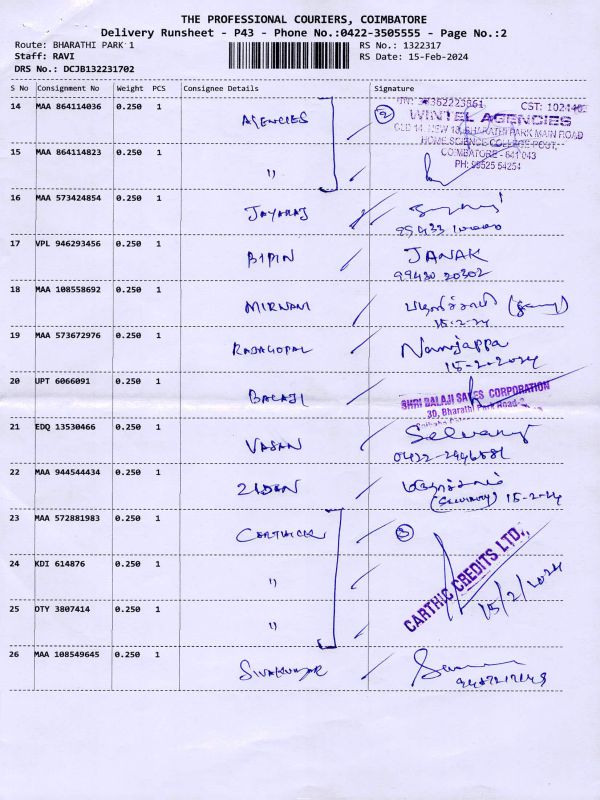 THE PROFESSIONAL COURIERS, COIMBATORE
Delivery Runsheet - P43 - Phone No.:0422-3505555 - Page No.:2
Route: BHARATHI PARK 1
RS No.: 1322317
Staff: RAVI
RS Date: 15-Feb-2024
DRS No.: DCJB132231702
S No Consignment No Weight PCS Consignee Details Signature
14 MAA 864114036 0.250 1 AGENCIES 2
WINTEL AGENCIES
OLD 14, NEW 13, BHARATHI PARK MAIN ROAD
HOME SCIENCE COLLEGE POST,
COIMBATORE - 641 043
15 MAA 864114823 0.250 1 "
16 MAA 573424854 0.250 1 JAYARAJ
17 VPL 946293456 0.250 1 BIPIN JANAK
99430 20302
18 MAA 108558692 0.250 1
15-2-24
19 MAA 573672976 0.250 1 RAJAGOPAL Nanjappa
15-2-2024
20 UPT 6066091 0.250 1 BALAJI
SHRI BALAJI SALES CORPORATION
30, Bharathi Park Road-2
21 EDQ 13530466 0.250 1 VASAN
22 MAA 944544434 0.250 1
15-2-24
23 MAA 572881983 0.250 1 3
CARTHIC CREDITS LTD.,
24 KDI 614876 0.250 1 "
15/2/2024
25 OTY 3807414 0.250 1 "
26 MAA 108549645 0.250 1 SIVAKUMAR